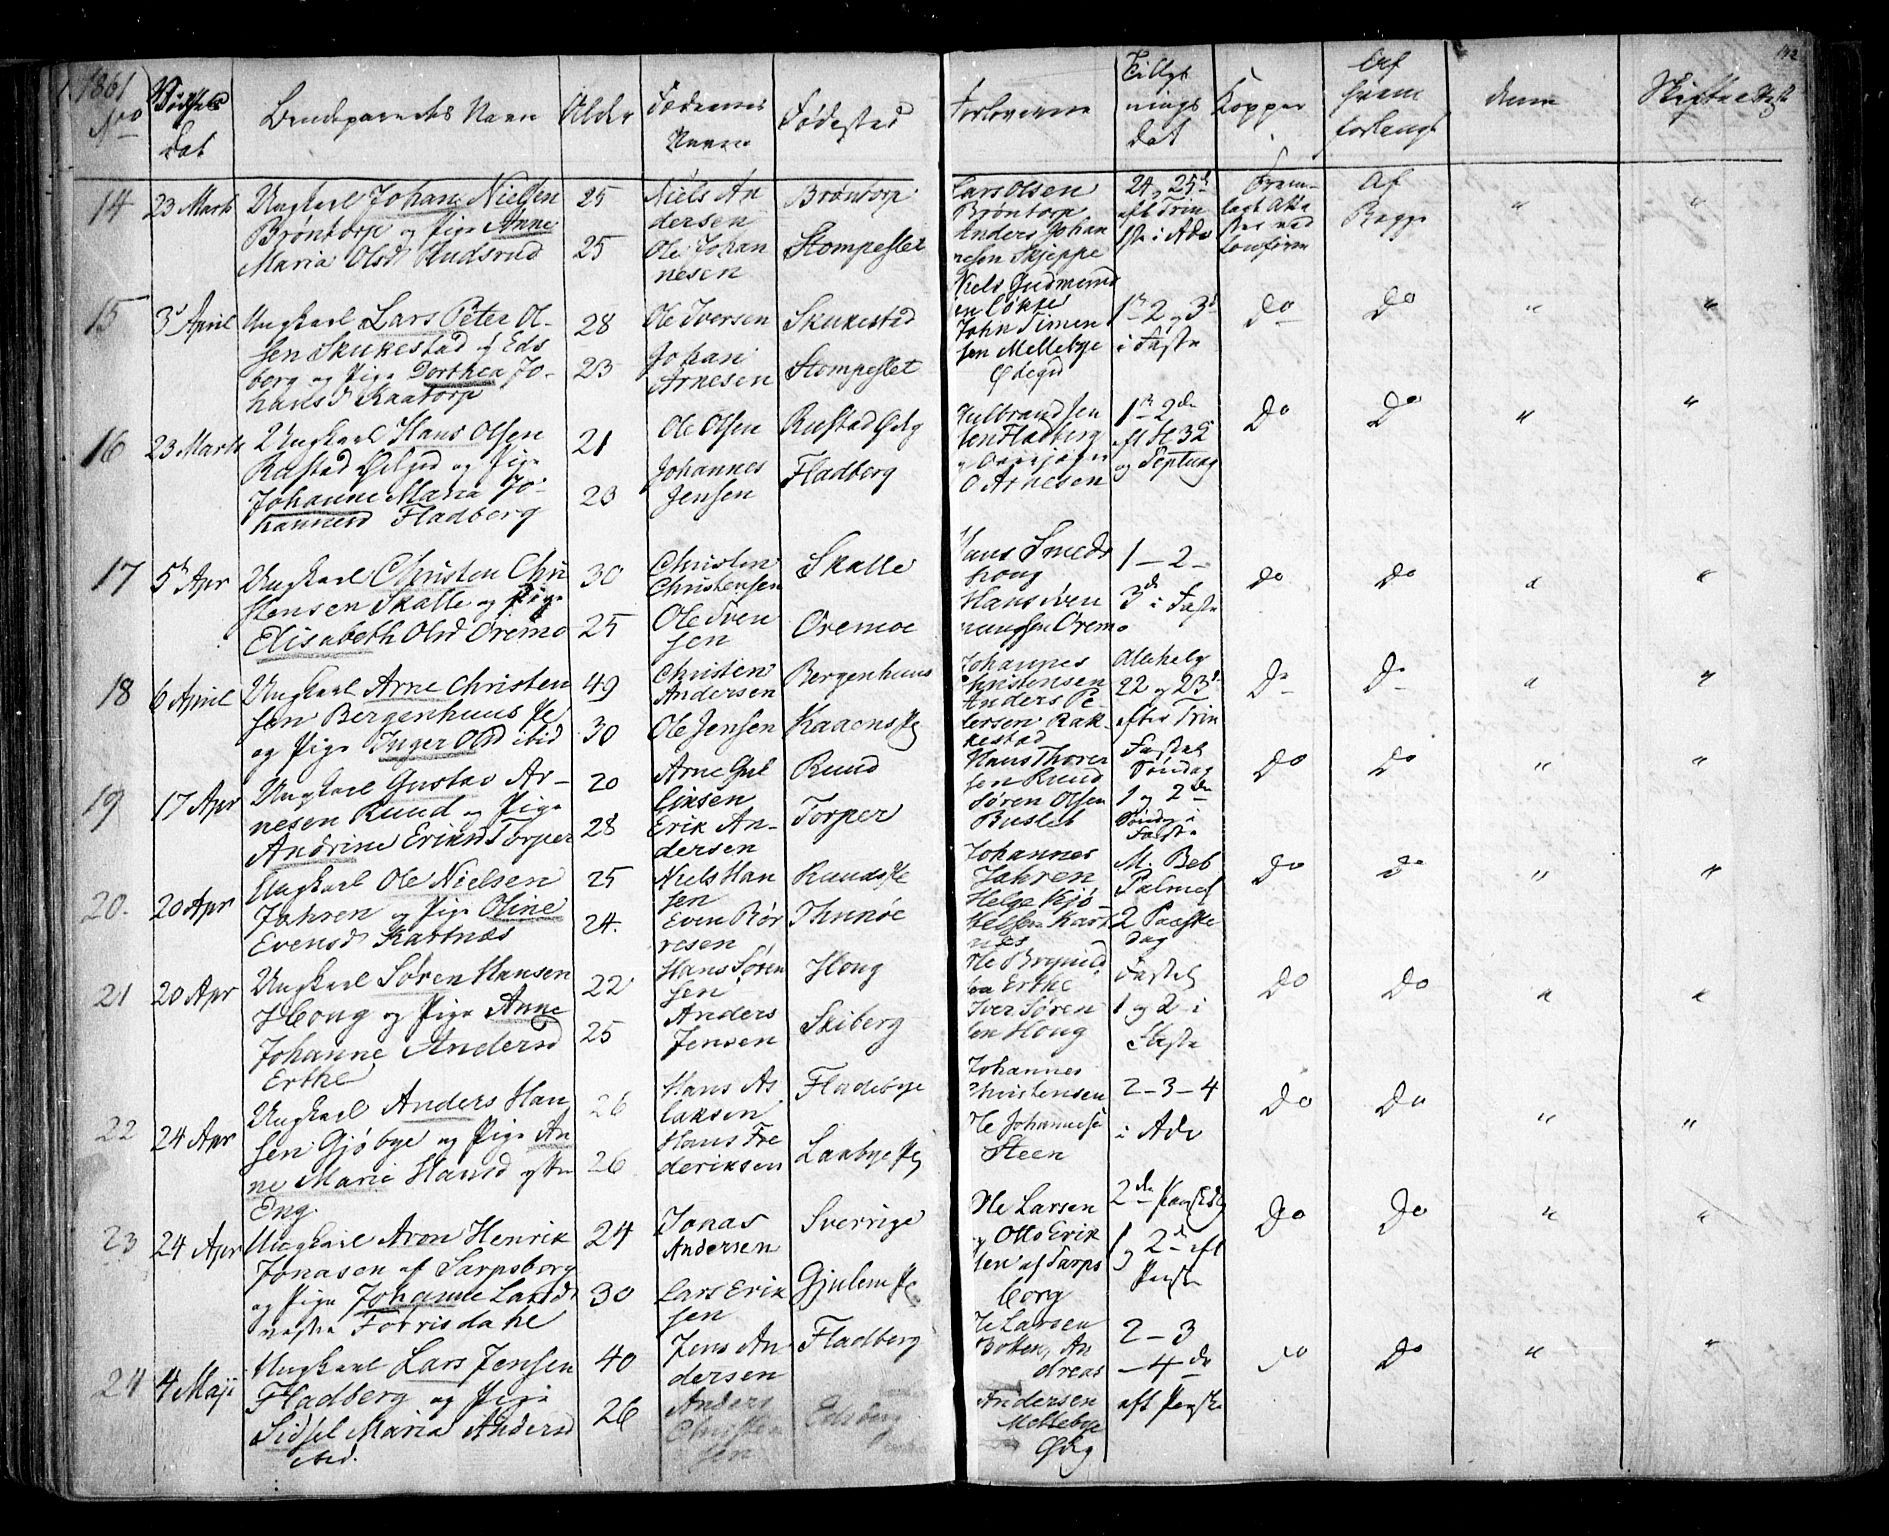 1861
No
Vidsels
Dat
Brudeparrets Navn
Alder
Fædrenes
Navne
Fødested
Forloverne
Tillys
nings
dat
Kopper
Af
hvem
forlangt
Anm
Skifteattest
142
14
23 Marts
Ungkarl Johan Nielsen
Brøntorp og Pige Anne
Maria Olsd Hudsrud
25
25
Niels An
dersen
Ole Johan
nesen
Brøntorp
Stompeslet
Lars Olsen
Brøntorp
Anders Johan
nesen Skjeppe
24 og 25d
eft Trin
i Adv
Af
Begge
"
"
15
3 April
Ungkarl Lars Peter Ol-
sen Skukestad af Eds
berg og Pige Dorthea Jo-
hansd Kaatorp
28
23
Ole Iversen
Johan
Arnesen
Skukestad
Stompeslet
Niels Gudmund
sen Løkke
John Simen
sen Mellebye
Ødegd
1 2 og 3d
i Faste
Do
Do
"
"
16
23 Marts
Ungkarl Hans Olsen
Rustad Ødegd og Pige
Johanne Maria Jo-
hannesd Fladberg
21
23
Ole Olsen
Johannes
Jensen
Rustad Ødg
Fladberg
Hulbrand Jen
sen Fladberg
O Arnesen
1 2den
eft H 3K
og Septuag
Do
Do
"
"
17
5 Apr
Ungkarl Christen Chri
stensen Skalle og Pige
Elisabeth Olsd Øremo
30
25
Christen
Christensen
Ole Iver
sen
Skalle
Oremoe
Hans Smeds
houg
Hans Iven
sen Orem
1 - 2 -
3de i Faste
Do
Do
"
"
18
6 April
Ungkarl Arne Christen
sen Bergenhuus Pe
og Pige Inger Olsd ibid
49
30
Christen
Andersen
Ole Jensen
Bergenhuus
Kaaens Pl
Johannes
Christensen
Anders Pe-
tersen Rak-
kestad
Allehelg
22 og 23d
efter Trin
Do
Do
"
"
19
17 Apr
Ungkarl Gustav Ar-
nesen Ruud og Pige
Andrine Eriksd Torper
20
28
Arne Gul
liksen
Erik An-
dersen
Ruud
Torper
Hans Thore
sen Ruud
Søren Olsen
Buslet
Fastel
Søndag
1 og 2den
Søndg i
Faste
Do
Do
"
"
20.
20 Apr
Ungkarl Ole Nielsen
Jahren og Pige Oline
Evensd Kartnæs
25
24.
Niels Han
sen
Even Bør
resen
Ruuds Pe
Thunøe
Johannes
Jahren
Helge Kjø-
kelsen Kart
næs
M. Beb
Palmes
2 Paaske
dag
Do
do
"
"
21
20 Apr
Ungkarl Søren Hansen
Houg og Pige Anne
Johanne Andersd
Erthe
22
25
Hans Søren
sen
Anders
Jensen
Houg
Skiberg
Ole Brynild
sen Erthe
Iver Søren
sen Houg
Fastel
1 og 2 i
Faste
Do
Do
"
"
22
24 Apr
Ungkarl Anders Han
sen Gjøbye og Pige An
ne Marie Hansd ystre
Eng.
26
26
Hans As
laksen
Hans Fre
deriksen
Fladebye
Laabye Pl
Johannes
Christensen
Ole Johannese
Steen
2 - 3 - 4
i Adv
Do
Do
"
"
23
24 Apr
Ungkarl Aron Henrik
Jonasen af Sarpsborg
og Pige Johanne Larsd
nestre Forrisdahl
24
30
Jonas
Andersen
Lars Erik
sen
Sverrige
Gjulem Pl
Ole Larsen
og Otto Erik
sen af Sarps
borg
2den Paaskedg
1 og 2den eft
Paaske
Do
Do
"
"
24
4 Maji
Ungkarl Lars Jensen
Fladberg og Pige
Sidsel Maria Andersd
ibid.
40
26
Jens An
dersen
Anders
Christen
sen
Fladberg
Edsberg
Ole Larsen
Botten, An
dreas
Andersen
Mellebye
Ødg
2 - 3
- 4de
eft Paaske
Do
Do
"
"